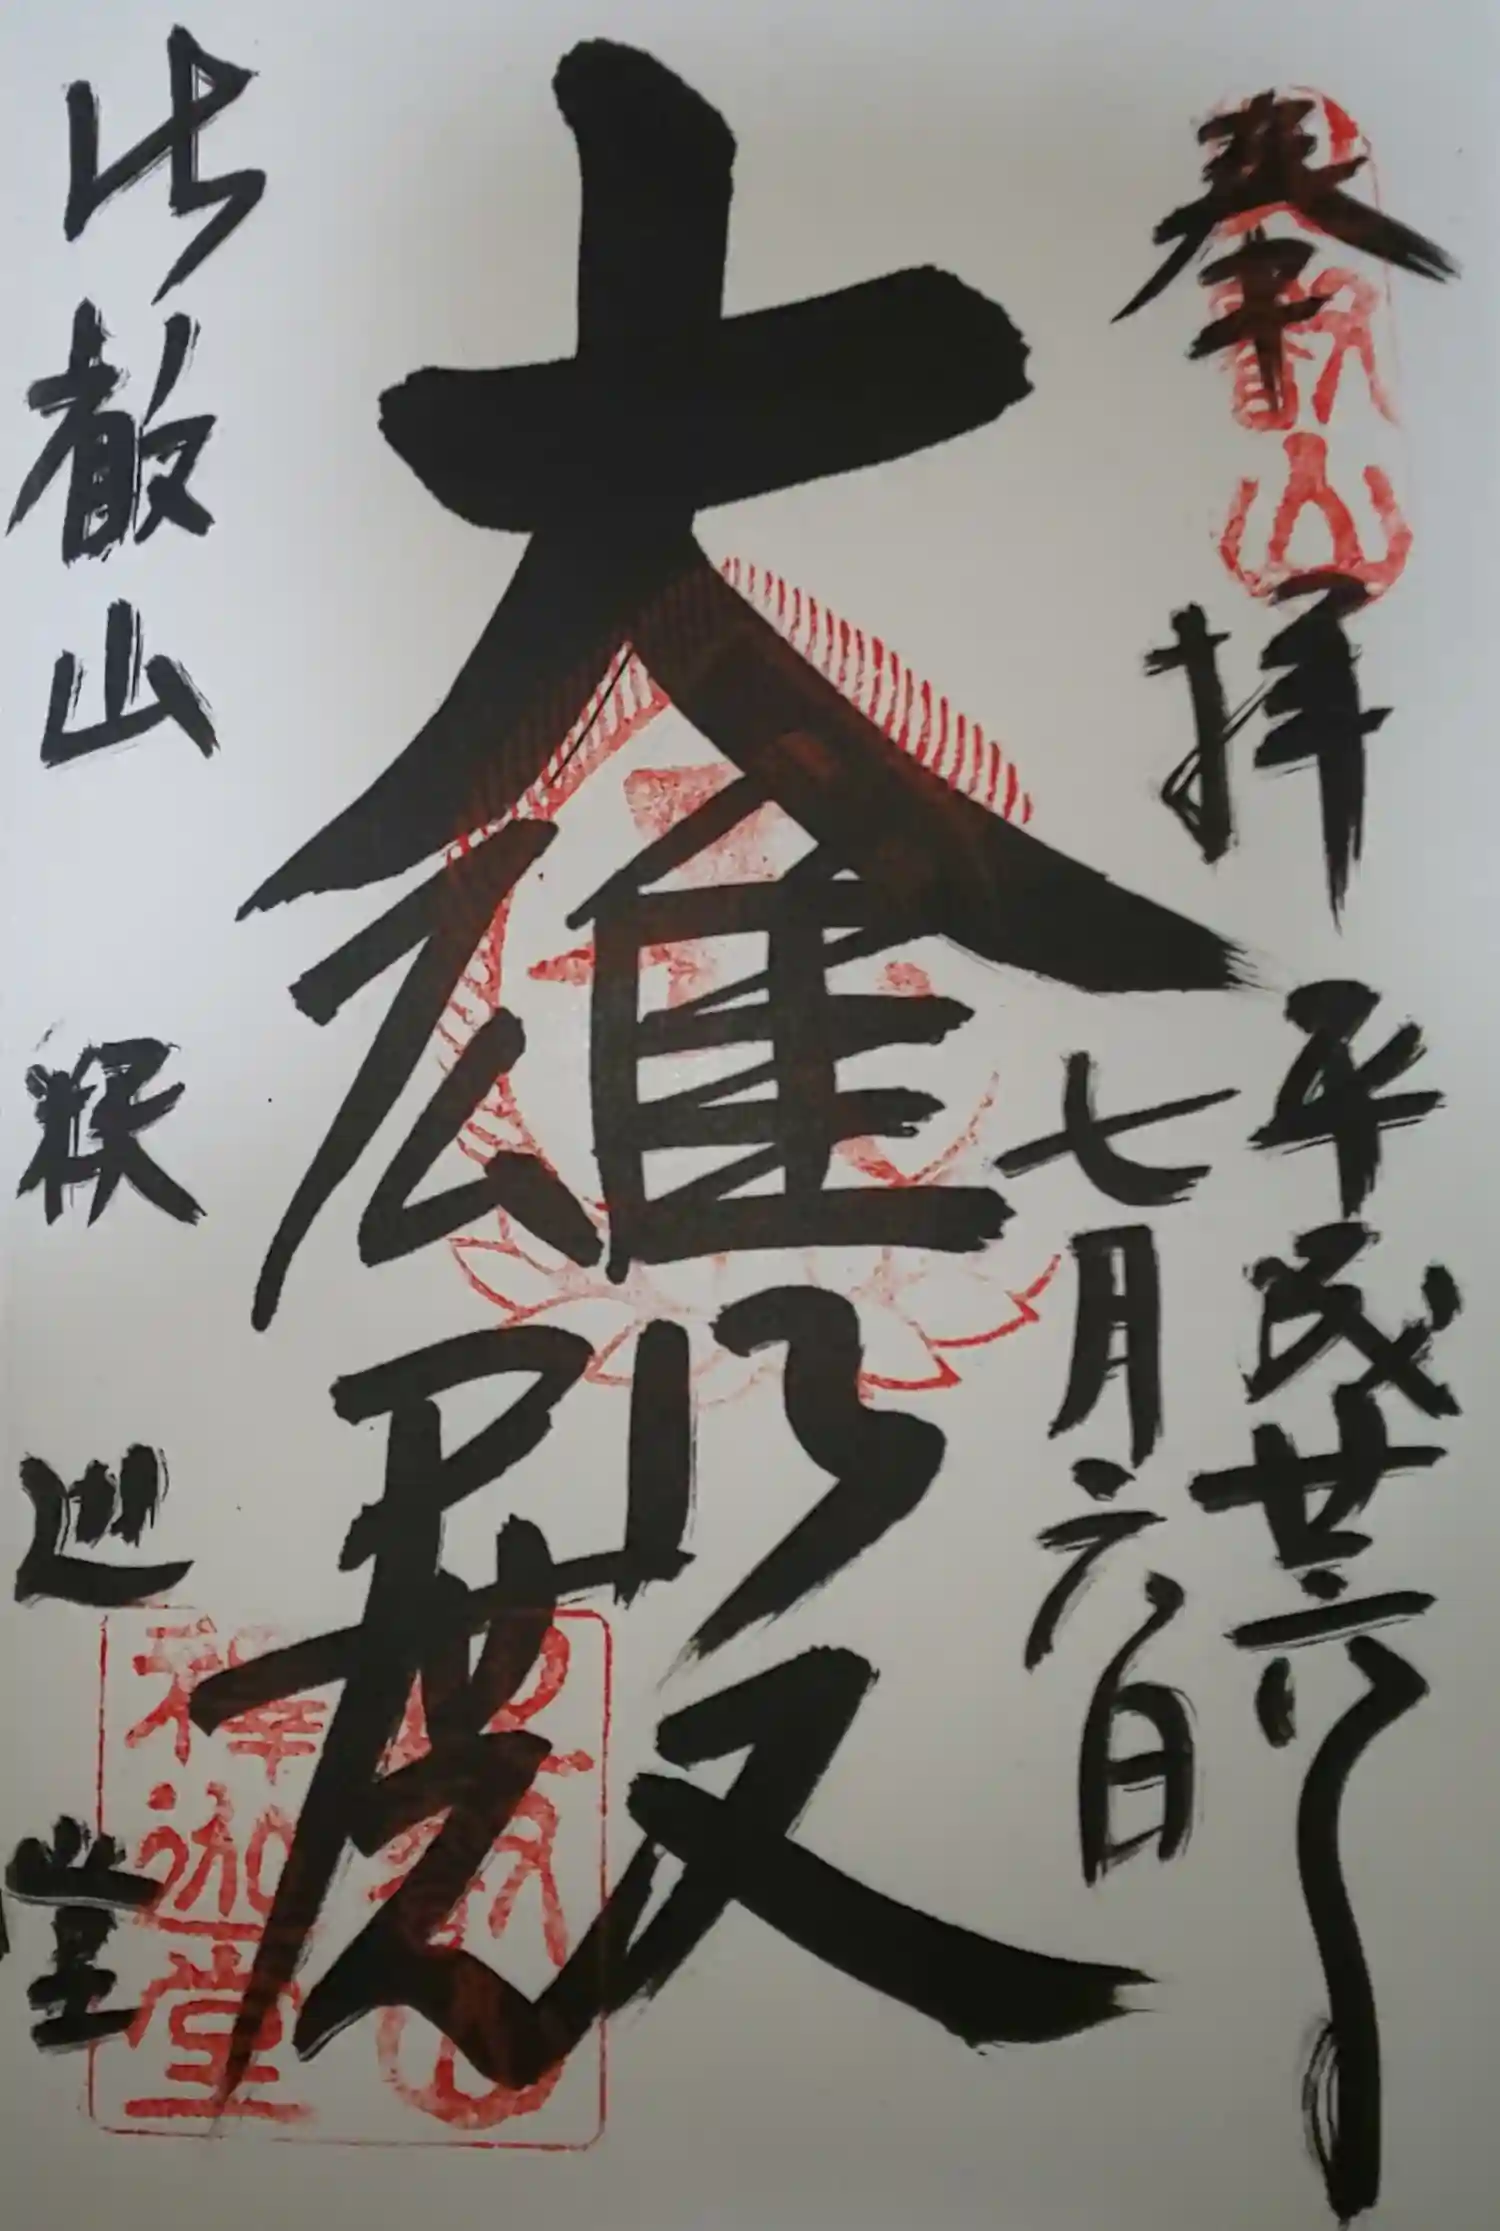 奉拝
平成廿六年
七月六日
大雄殿
比叡山 釈迦堂
比叡山
比叡山
釋迦堂